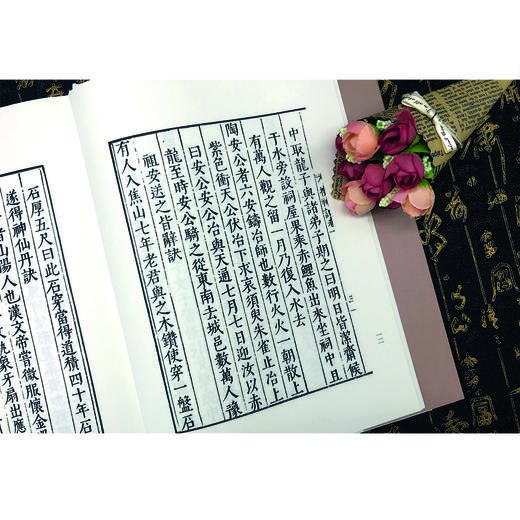 中取龍子與諸弟子期之曰明日皆潔齋候
于水旁設祠屋果乘赤鯉魚出來坐祠中且
有萬人觀之留一月乃復入水去
陶安公者六安鑄冶師也數行火火一朝散上
紫色衝天公伏冶下求哀須臾朱雀止冶上
曰安公安公冶與天通七月七日迎汝以赤
龍至時安公騎之從東南去城邑數萬人豫
祖安送之皆辭訣
有人入焦山七年老君與之木鑽使穿一盤石
石厚五尺曰此石穿當得道積四十年石
遂得神仙丹訣
者山陽人也漢文帝嘗微服懷金
象牙扇出應